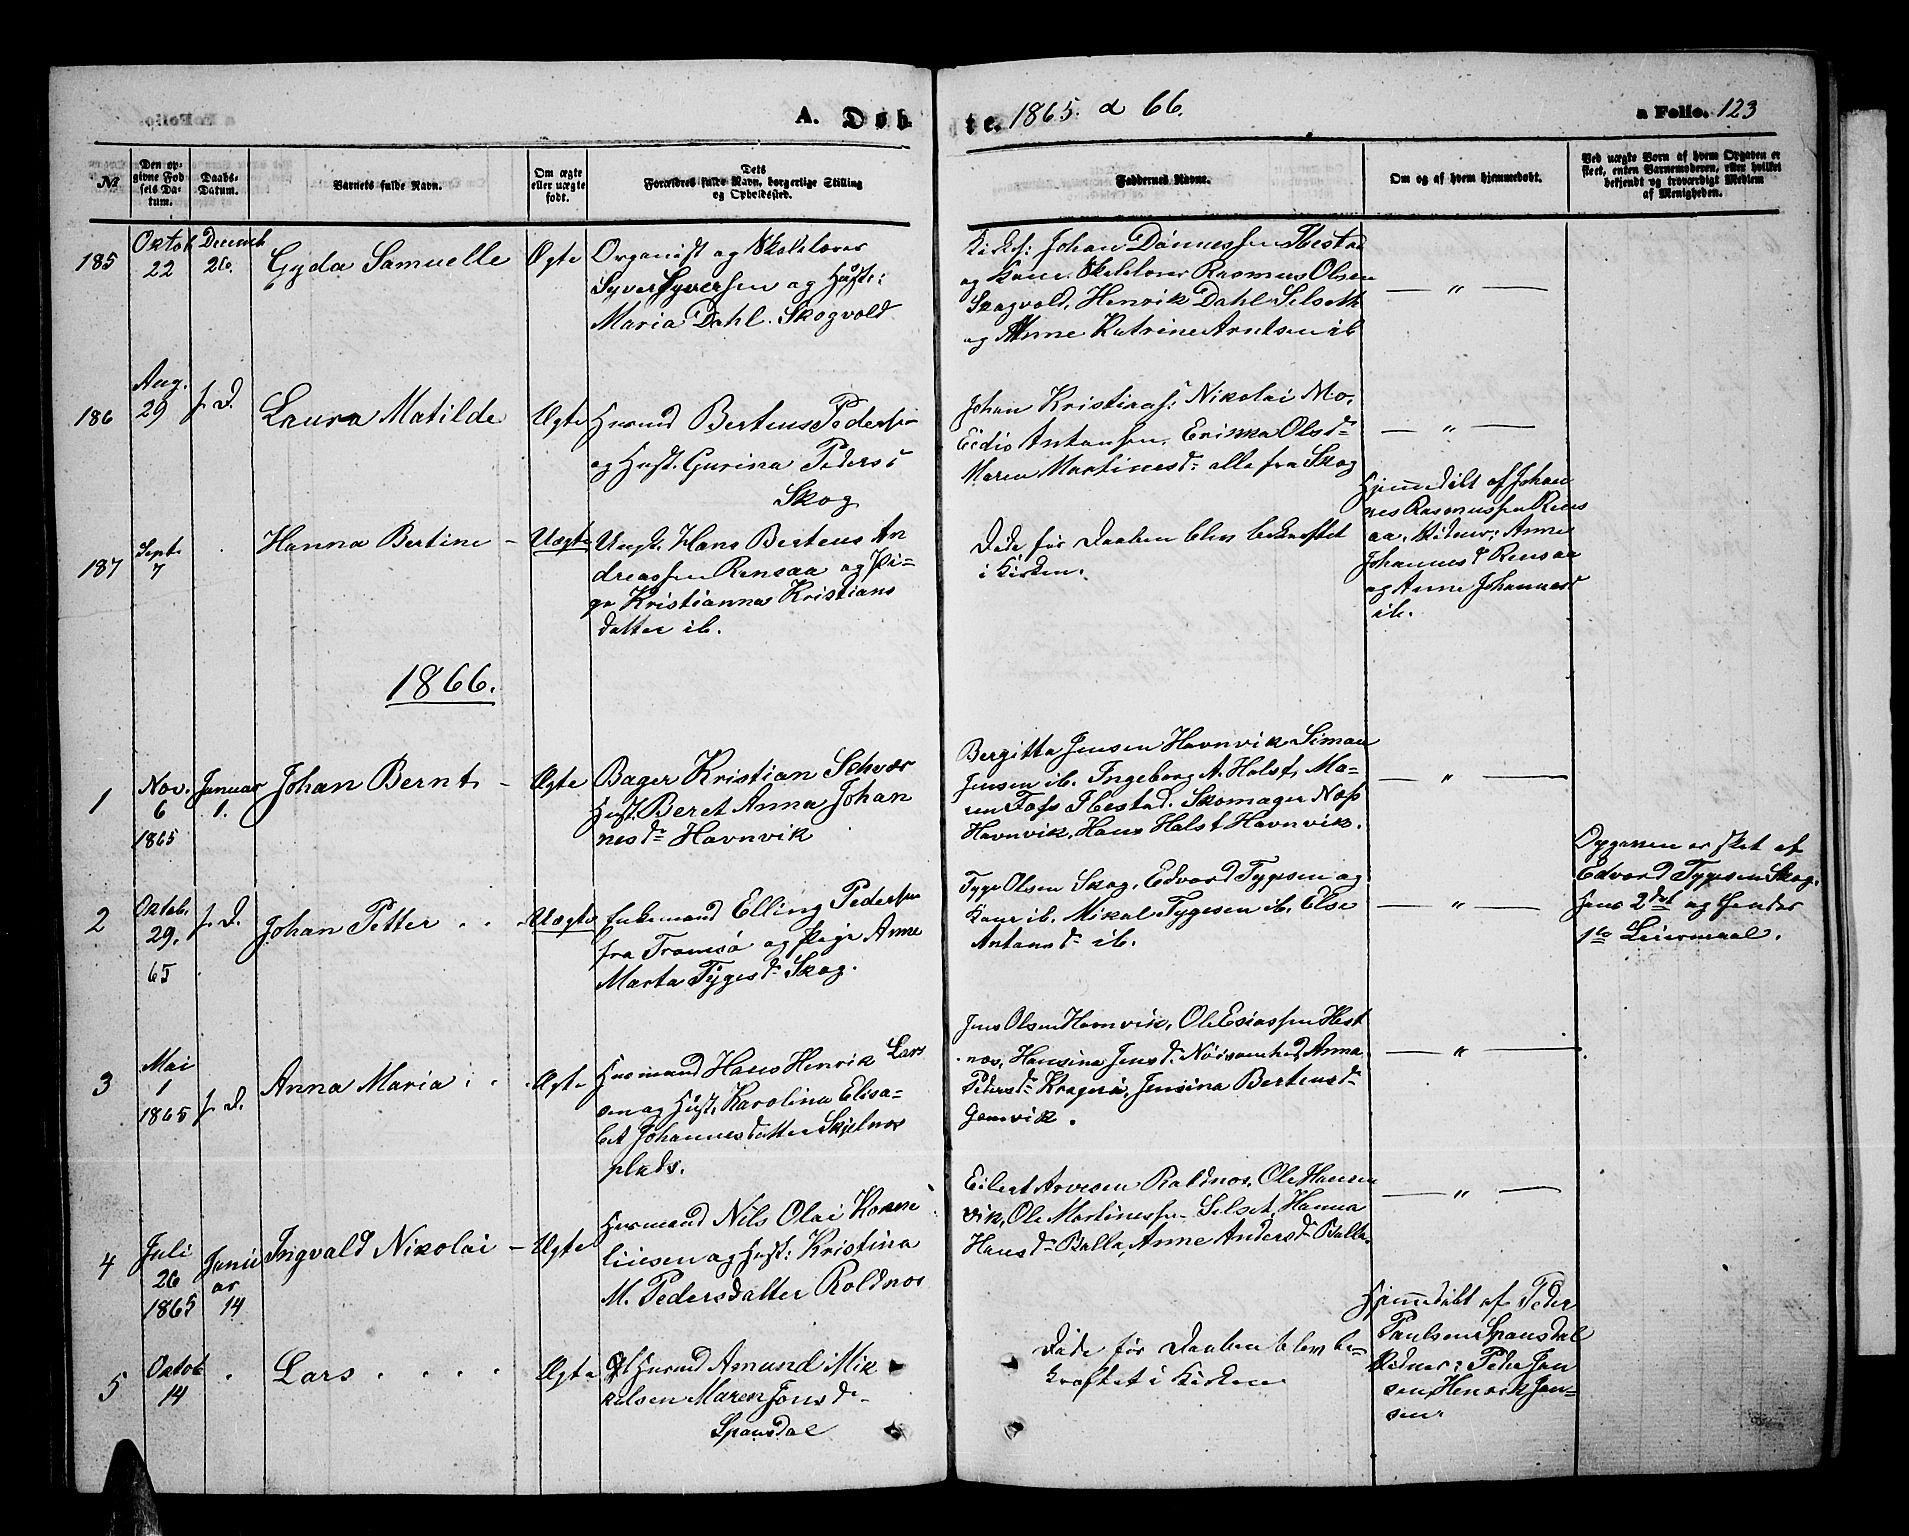 A. Døb
te. 1865. a 66.
a Folio. 123
№
Den op-
givne Fød
sels Da-
tum.
Daabs-
Datum.
Barnets fulde Navn.
Om ægte
eller uægte
født.
Dets
Forældres fulde Navn, borgerlige Stilling
og Opholdssted.
Faddernes Navne.
Om og af hvem hjemmedøbt.
Ved uægte Born af hvem Opgaven er
skeet, enten Barnemoderen, eller hvilket
bekjendt og troværdigt Medlem
af Menigheden.
185
Oktob
22
Decemb
26.
Gyda Samuelle
Ægte
Organist og Skolelærer
Syver Syversen og Hust:
Maria Dahl. Skogvold
Johan Dønnessen Ibestad
og Kone. Skolelærer Rasmus Olsen
Skogvold, Henrik Dahl Selseth
og Anne Katrine Arntsen ib
— " —
186
Aug.
29
s. D.
Laura Matilde
Ægte
Husmd Berteus Pedersen
og Hust. Gurina Peders
Skog
Johan Kristians: Nikolai Mo.
Eidis Antonsen. Erikka Olsdr
Maren Martinesdr alle fra Skog
— " —
187
Sept.
7
Hanna Bertine –
Uægte
Ungk. Hans Berteus An
dreassen Rensaa og Pi-
ge Kristianna Kristians
datter ib.
Døde før Daaben blev bekræftet
i Kirken.
Hjemmedøbt af Johan
nes Rasmussen Rens
aa. Vidner: Anne
Johannesd Rensaa
og Anne Johannesd
ib.
1866.
1
Nov.
6
1865
Januar
1.
Johan Bernt –
Ægte
Bager Kristian Schvær
Hust. Beret Anna Johan
nesdr Havnvik
Bergitta Jensen Havnvik Simon
Jensen ib. Ingeborg A. Holst, Ma-
ren Foss Ibestad. Skomager Næss
Havnvik, Hans Holst Havnvik.
— " —
2
Oktob.
29.
65
s. D.
Johan Petter . .
Uægte
Enkemand Elling Pedersen
fra Tromsø og Pige Anne
Marta Tygesdr Skog.
Tyge Olsen Skog, Edvard Tygesen og
Kone ib. Mikal Tygesen ib. Else
Antonsdr ib.
— " —
Opgaven er sket af
Edvard Tygesen Skog.
Hans 2det og Hendes
1ste Leiermaal.
3
Mai
1
1865
s. D.
Anna Maria . .
Ægte
Husmand Hans Henrik Lars
sen og Hust. Karolina Elisa-
bet Johannesdatter Skjelnes
plads.
Jens Olsen Havnvik, Ole Esiassen Hest
nes, Hansina Jensdr Anna
Pedersdr Kragerø, Jensina Berteusdr
Gamvik.
— " —
4
Juli
26
1865
Janu
ar
14
Ingvald Nikolai –
Ægte
Husmand Nils Olai Korne
liusen og Hust: Kristina
M. Pedersdatter Roldnes
Eilert Arvesen Roldnes, Ole Hansen
vik, Ole Martinessen Selset, Hanna
Hansdr Balla, Anne Andersdr Balla.
— " —
5
Oktob
14
.
Lars . . . .
Ægte
Husmd Amund Mik
kelsen Maren Jonsdr
Spansdal
Døde før Daaben blev be-
kræftet i Kirken
Hjemmedøbt af Peder
Paulsen Spansdal
Vidner: Peder Jen
sen, Henrik Jen-
sen.